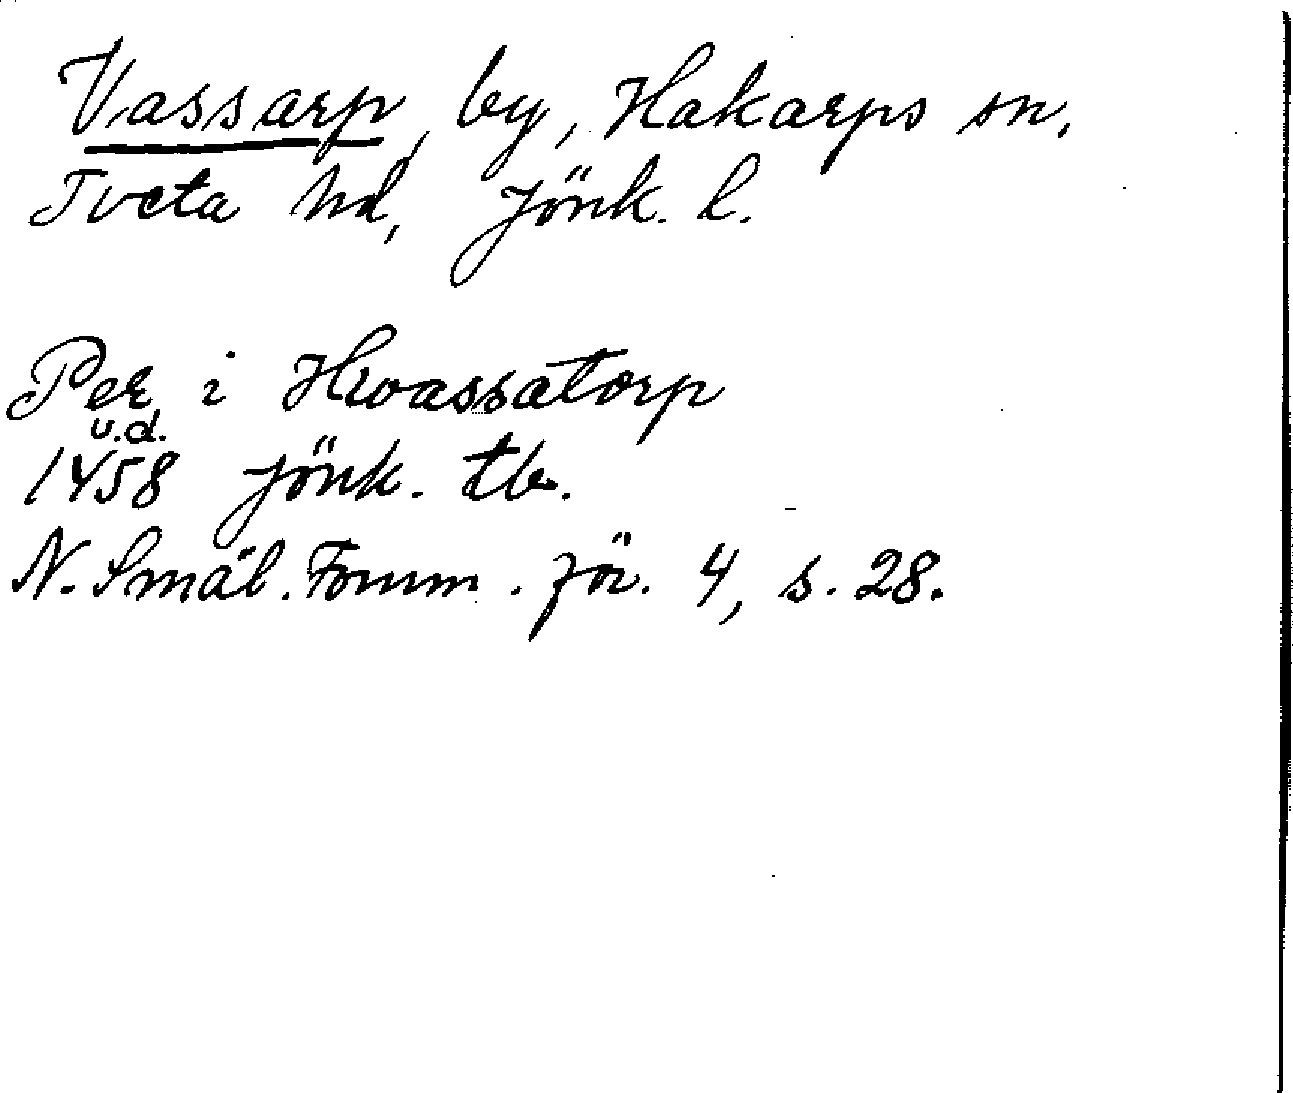 Vassarp, by, Hakarps sn,
Tveta hd, Jönk. l.
Per i Hvassatorp
u.d.
1458 Jönk. tb.
N. Smål. Fornm. för. 4, s. 28.